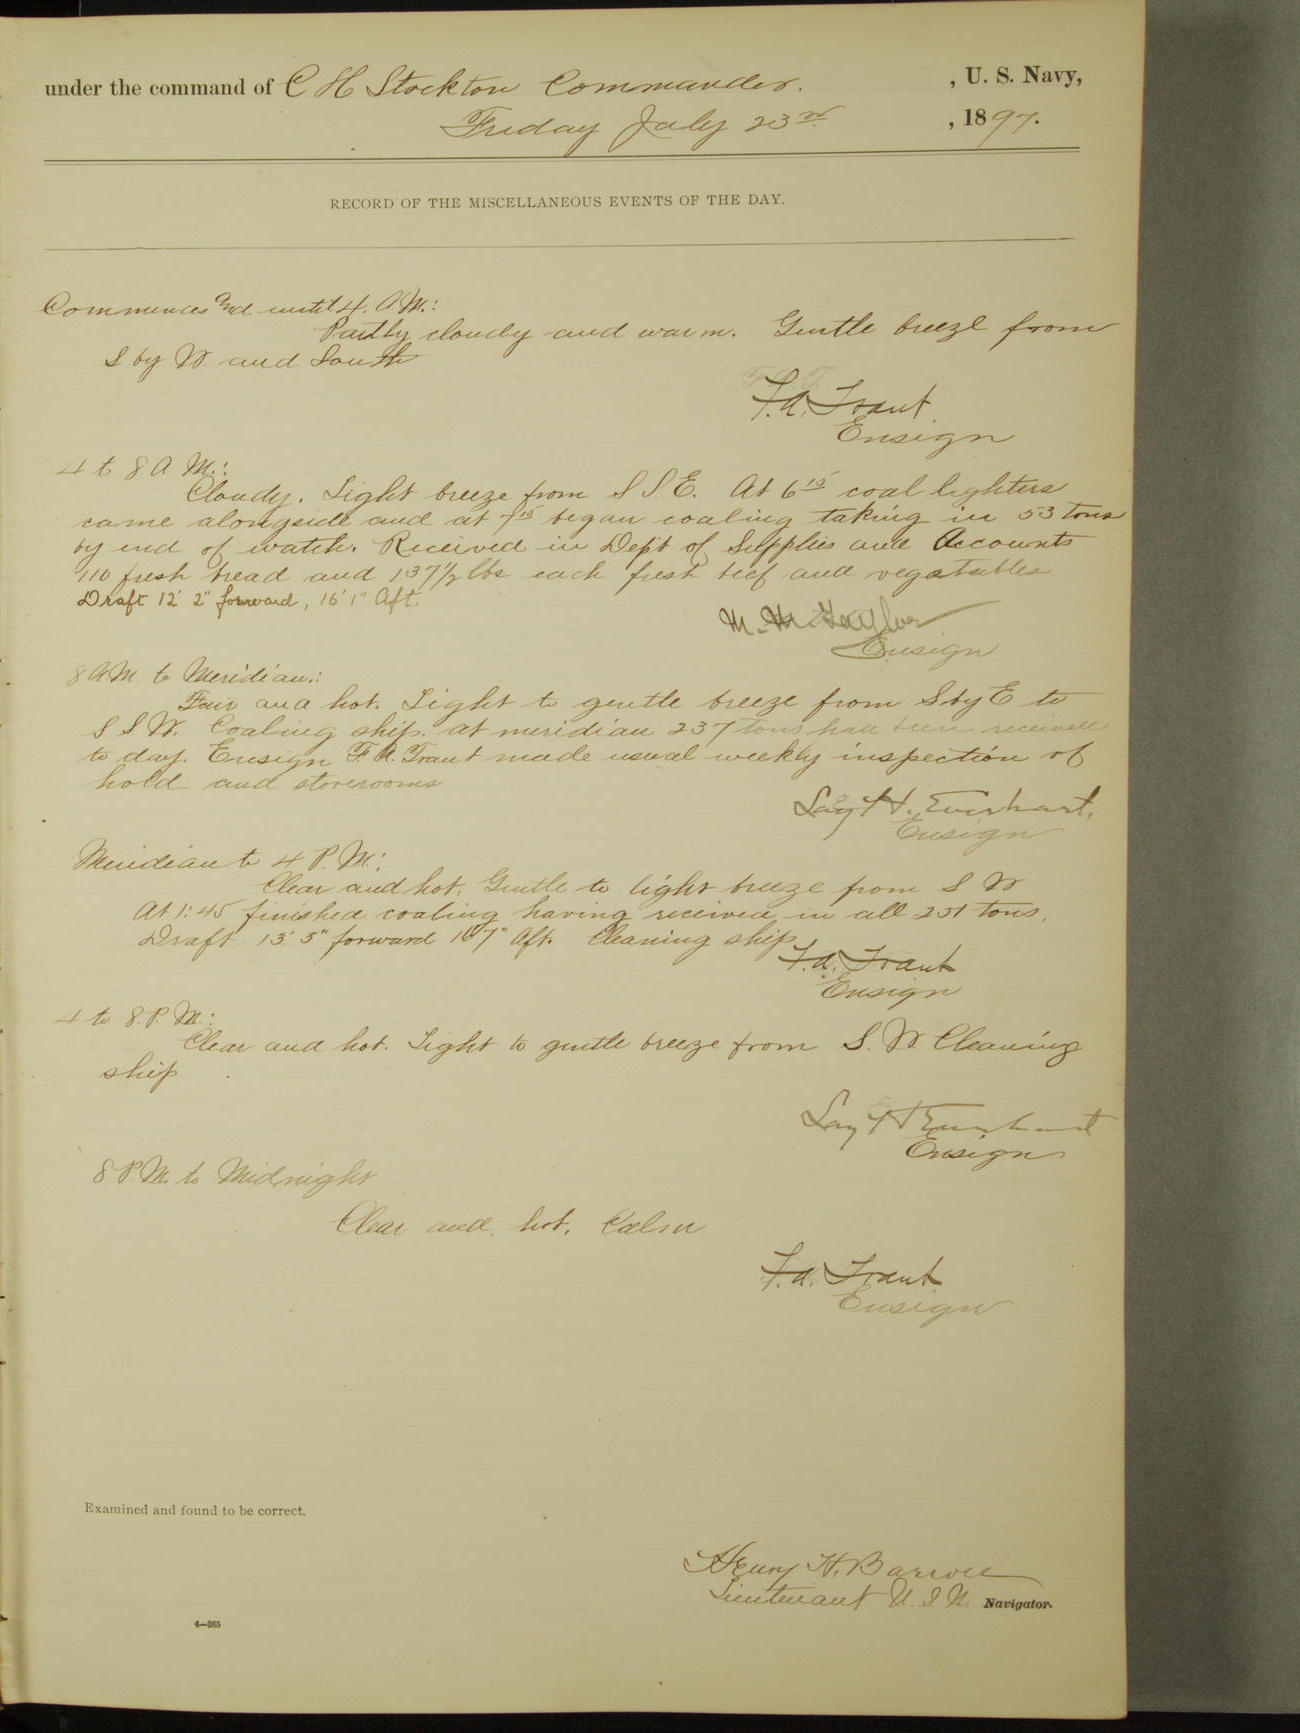 under the command of C H Stockton Commander. , U. S. Navy,
Friday July 23rd , 1897.
RECORD OF THE MISCELLANEOUS EVENTS OF THE DAY.
Commences and until 4. A.M.:
Partly cloudy and warm. Gentle breeze from
S by W. and South
F. A. Traut
Ensign
4 to 8 A. M.:
Cloudy. Light breeze from S S. E. At 6 15 coal lighters
came alongside and at 7 15 began coaling taking in 53 tons
by end of watch. Received in Dept of Supplies and Accounts
110 fresh bread and 137 1/2 lbs each fresh beef and vegetables
Draft 12' 2" forward, 16' 1" Aft.
M. M. Taylor
Ensign
8 A M. to Meridian.:
Fair and hot. Light to gentle breeze from S by E to
S S W. Coaling ship. at meridian 237 tons had been received
to day. Ensign F. A. Traut made usual weekly inspection of
hold and storerooms
Lay H. Everhart,
Ensign
Meridian to 4 P. M.:
Clear and hot. Gentle to light breeze from S W
At 1:45 finished coaling having received in all 251 tons.
Draft 13' 5" forward 7" Aft. Cleaning ship
F. A. Traut
Ensign
4 to 8. P. M.:
Clear and hot. Light to gentle breeze from S. W. Cleaning
ship
Lay H Everhart
Ensign
8 P. M. to Midnight
Clear and hot. Calm
F. A. Traut
Ensign
Examined and found to be correct.
Henry H. Barroll
Lieutenant U. S. N. Navigator.
4—265